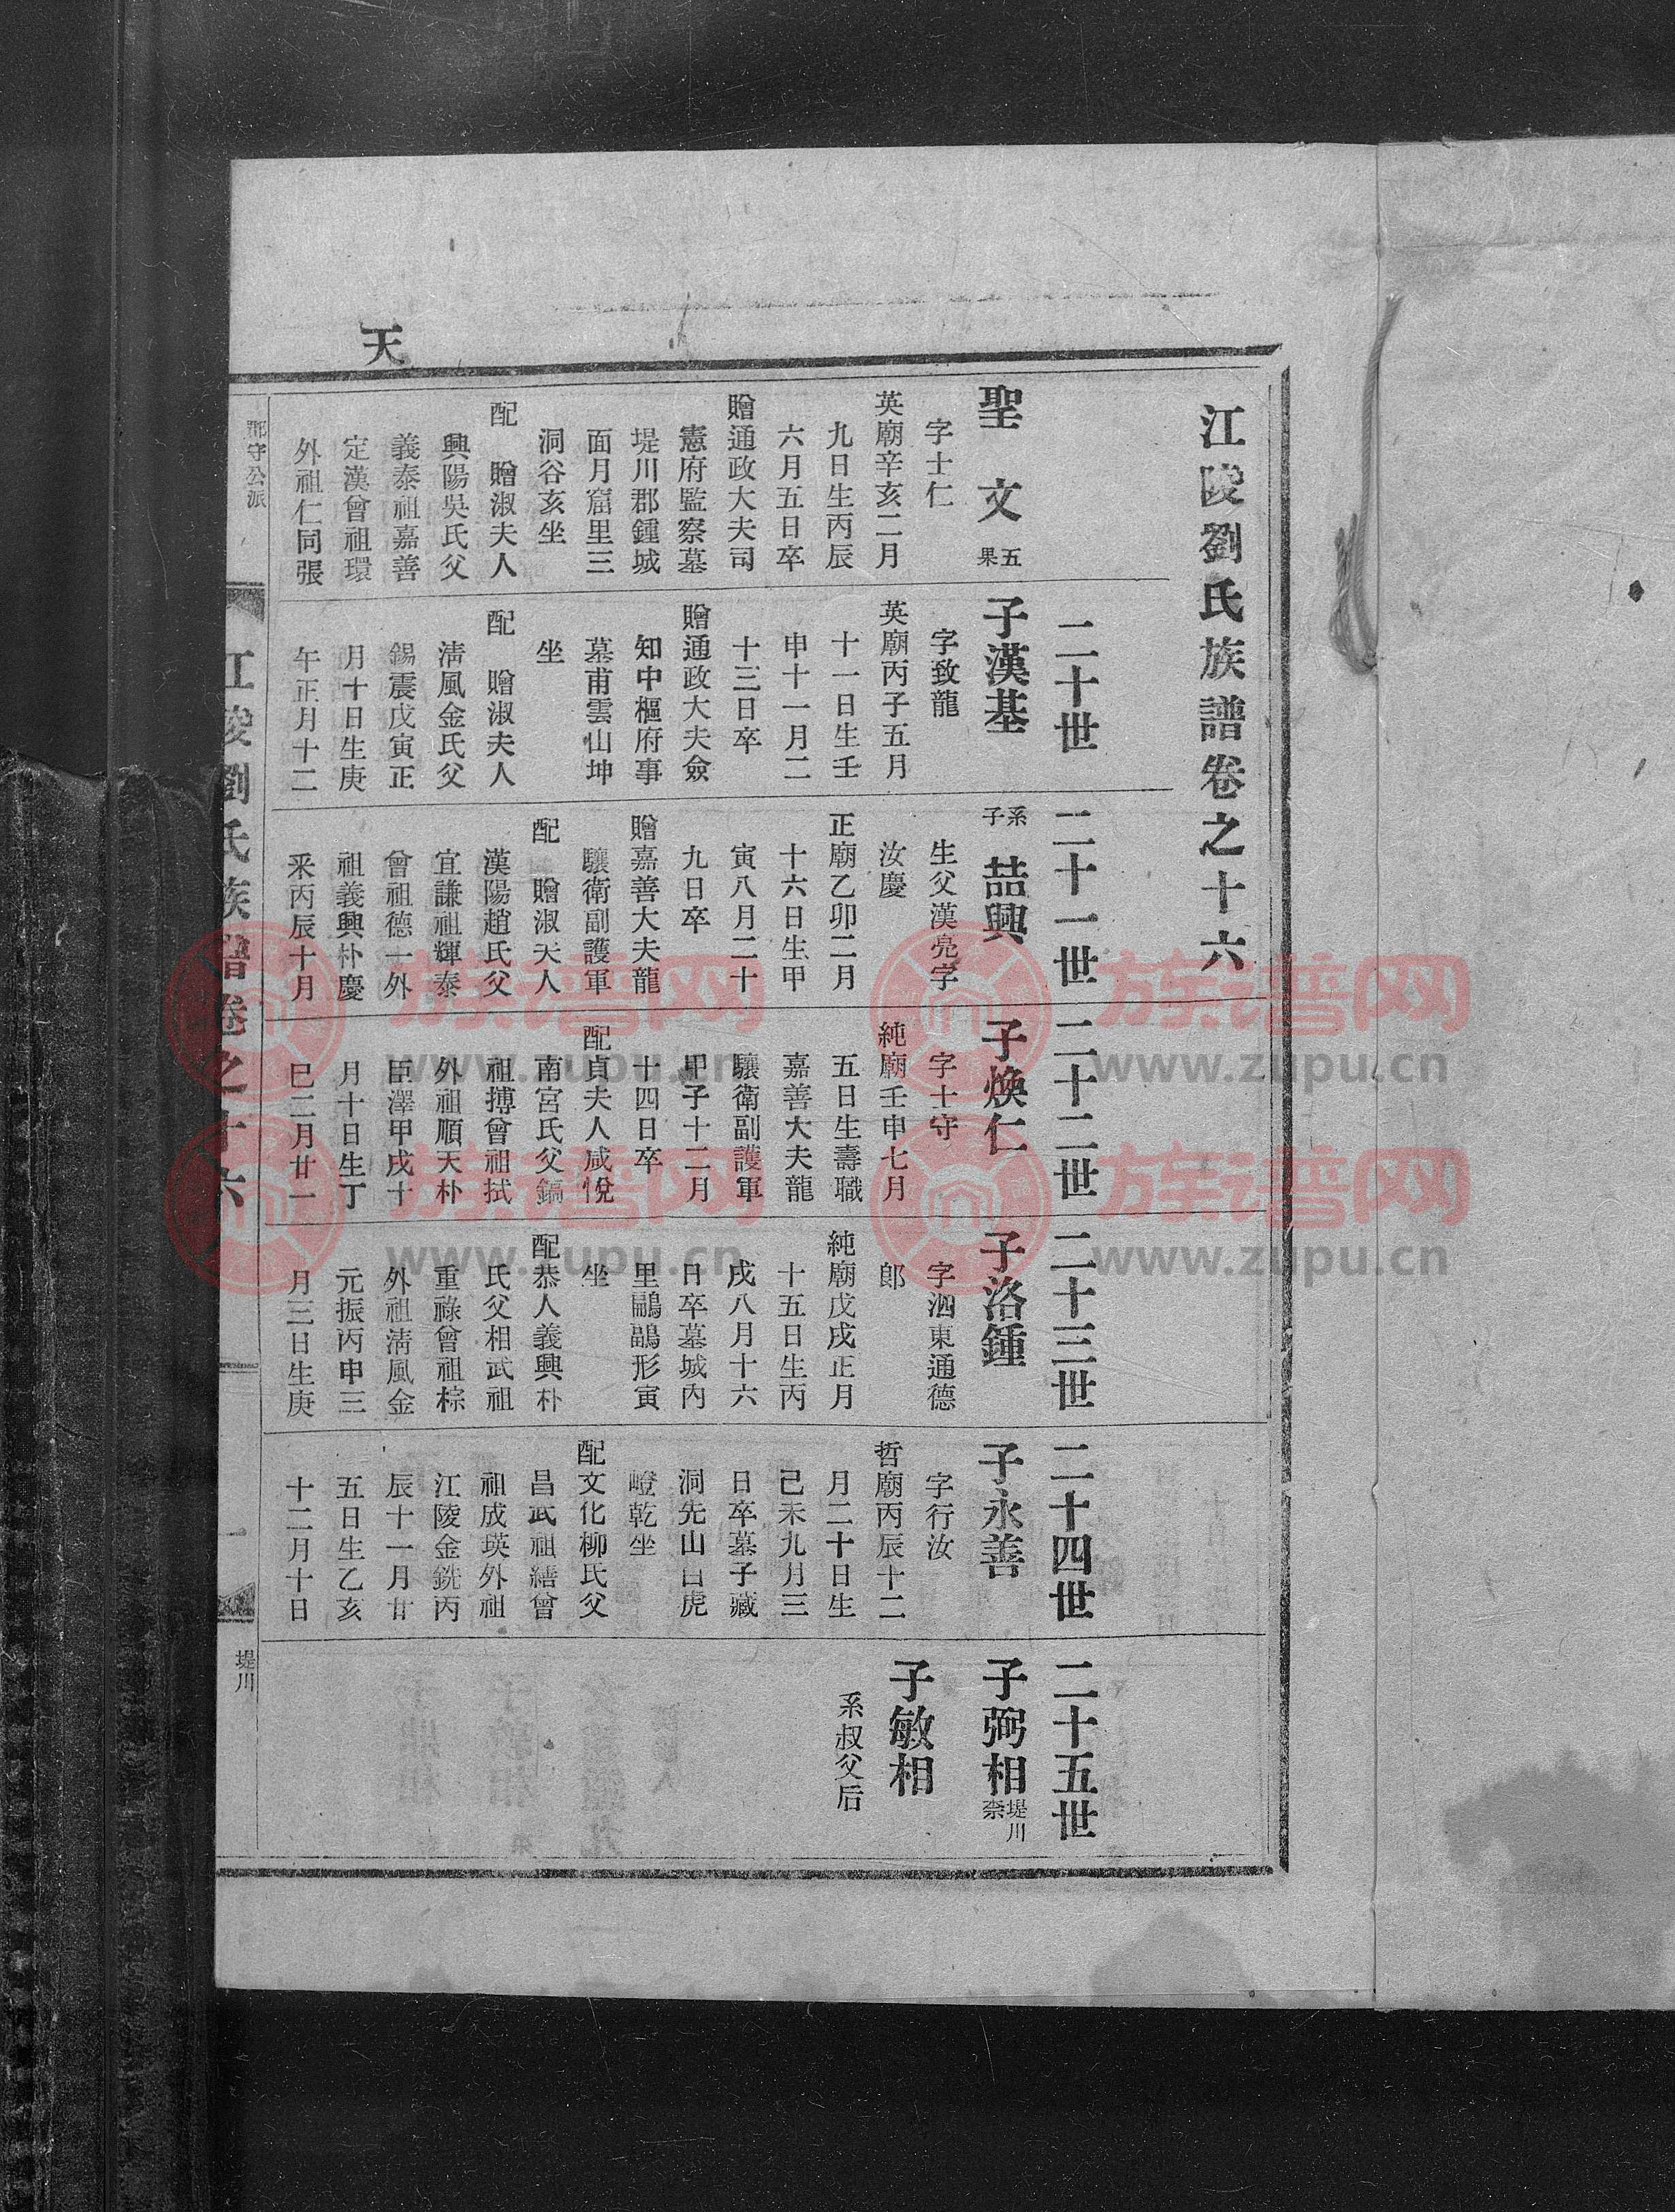 江陵劉氏族譜卷之十六
天
聖文
五
果
字士仁
英廟辛亥二月
九日生丙辰
六月五日卒
贈通政大夫司
憲府監察墓
堤川郡鍾城
面月窟里三
洞谷亥坐
配 贈淑夫人
興陽吳氏父
義泰祖嘉善
定漢曾祖環
外祖仁同張
二十世
子漢基
字致龍
英廟丙子五月
十一日生壬
申十一月二
十三日卒
贈通政大夫僉
知中樞府事
墓甫雲山坤
坐
配 贈淑夫人
淸風金氏父
錫震戊寅正
月十日生庚
午正月十二
二十一世
系子
喆興
生父漢亮字
汝慶
正廟乙卯二月
十六日生甲
寅八月二十
九日卒
贈嘉善大夫龍
驤衛副護軍
配 贈淑夫人
漢陽趙氏父
宜謙祖輝泰
曾祖德一外
祖義興朴慶
釆丙辰十月
二十二世
子煥仁
字士守
純廟壬申七月
五日生壽職
嘉善大夫龍
驤衛副護軍
甲子十二月
十四日卒
配貞夫人咸悅
南宮氏父鎬
祖搏曾祖拭
外祖順天朴
臣澤甲戌十
月十日生丁
巳二月廿一
二十三世
子洛鍾
字泗東通德
郎
純廟戊戌正月
十五日生丙
戌八月十六
日卒墓城內
里鷊鶓形寅
坐
配恭人義興朴
氏父相武祖
重祿曾祖棕
外祖淸風金
元振丙申三
月三日生庚
二十四世
子永善
字行汝
哲廟丙辰十二
月二十日生
己未九月三
日卒墓子藏
洞先山白虎
嶝乾坐
配文化柳氏父
昌武祖繕曾
祖成瑛外祖
江陵金銑丙
辰十一月廿
五日生乙亥
十二月十日
二十五世
子弼相
堤川
柰
子敏相
系叔父后
郡守公派
江陵劉氏族譜卷之十六
一
堤川
族谱网
www.zupu.cn
族谱网
www.zupu.cn
族谱网
www.zupu.cn
族谱网
www.zupu.cn